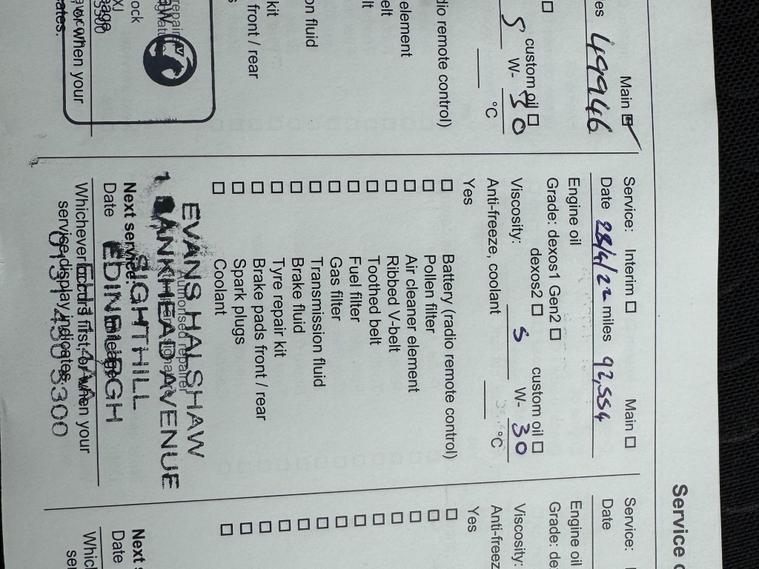 Service
Main ☑
49946
custom oil ☐
5 W- 30
°C
dio remote control)
element
elt
lt
on fluid
kit
front / rear
Service: Interim ☐ Main ☐
Date 28/4/22 miles 92,554
Engine oil
Grade: dexos1 Gen2 ☐
dexos2 ☐ custom oil ☐
Viscosity: 5 W- 30
Anti-freeze, coolant °C
Yes
☐ Battery (radio remote control)
☐ Pollen filter
☐ Air cleaner element
☐ Ribbed V-belt
☐ Toothed belt
☐ Fuel filter
☐ Gas filter
☐ Transmission fluid
☐ Brake fluid
☐ Tyre repair kit
☐ Brake pads front / rear
☐ Spark plugs
☐ Coolant
EVANS HALSHAW
BANKHEAD AVENUE
SIGHTHILL
EDINBURGH
Next service
Date
Whichever occurs first, or when your
service display indicates.
Service:
Date
Engine oil
Grade: de
Viscosity:
Anti-freez
Yes
Next
Date
Whic
ser